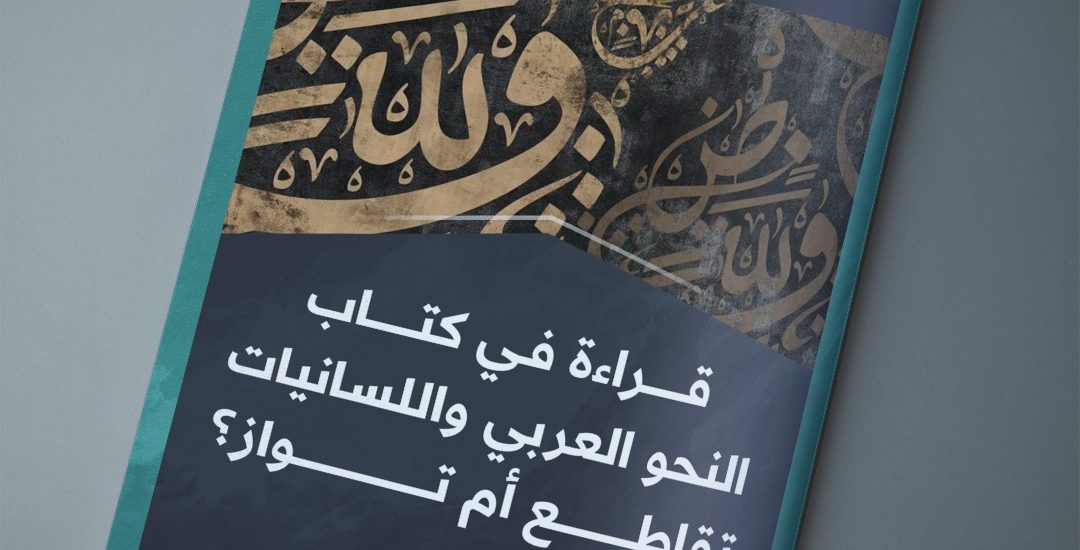 قراءة في كتاب
النحو العربي واللسانيات
تقاطع أم تواز؟